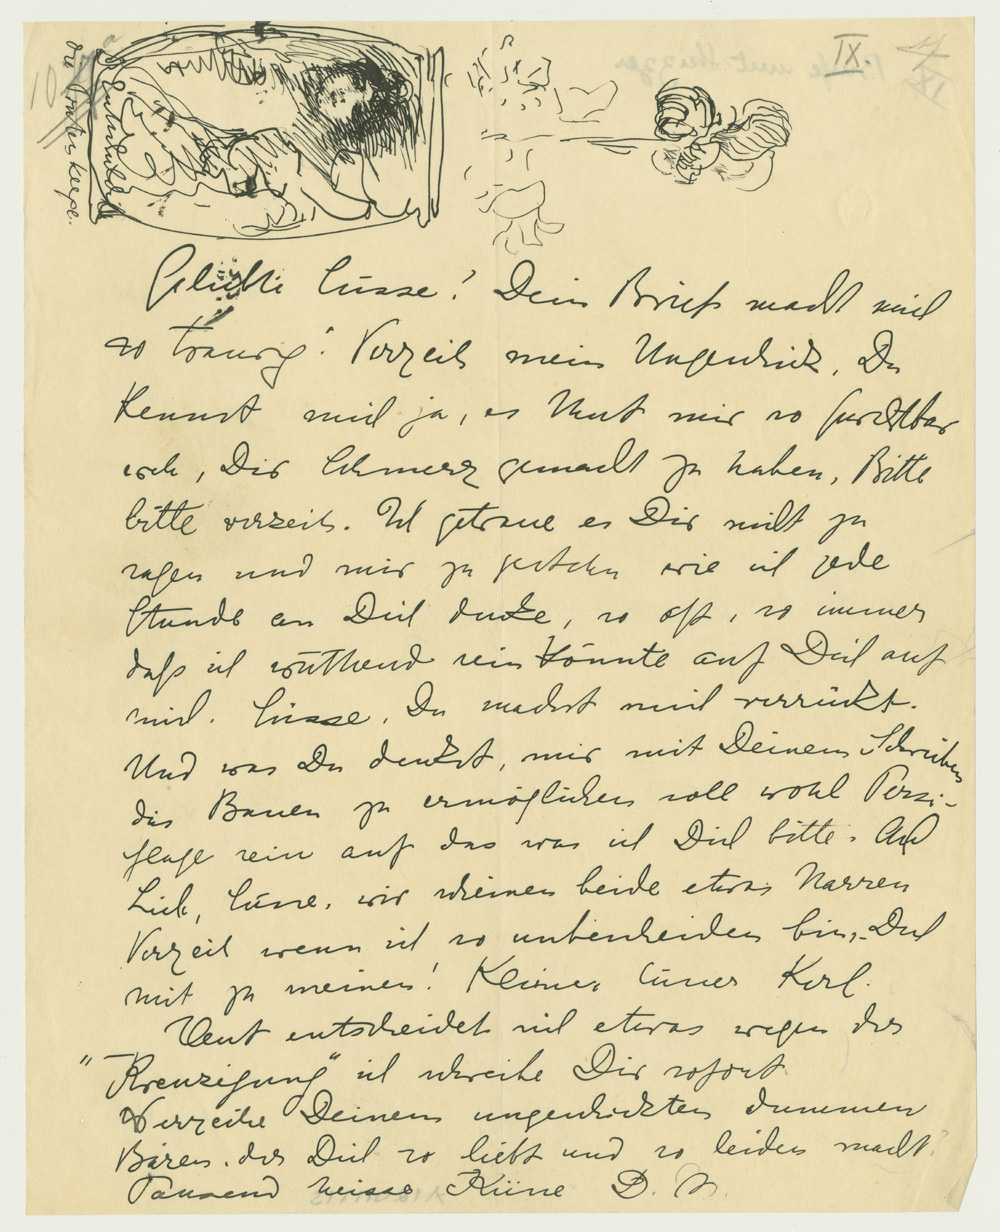 IX.
Geliebte Süsse! Dein Brief macht mich
so traurig! Verzeih mein Ungeschick, Du
kennst mich ja, es thut mir so furchtbar
weh, Dir Schmerz gemacht zu haben, Bitte
bitte verzeih. Ich getraue es Dir nicht zu
sagen und mir zu wie ich jede
Stunde an Dich denke, so oft, so immer
daß ich wüthend sein könnte auf Dich auf
mich. Süsse, Du machst mich verrückt.
Und was Du denkst, mir mit Deinem Schreiben
das Bauen zu ermöglichen soll wohl Persi-
flage sein auf das was ich Dich bitte. Ach
Lieb, Süsse, wir scheinen beide etwas Narren
Verzeih wenn ich so unbescheiden bin, Dich
mit zu meinen! Kleiner süsser Kerl.
Heut entscheidet sich etwas wegen der
"Kreuzigung" ich schreibe Dir sofort.
Verzeihe Deinem ungeschickten dummen
Bären, der Dich so liebt und so leiden macht!
Tausend heisse Küsse D.